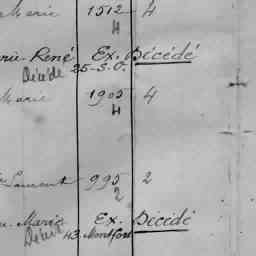 Marie 1512 4
4
René Ex. Décédé
Décédé 25-S.O.
Marie 1905 4
4
Laurent 995 2
2
Marie Ex. Décédé
Décédé 43. Montfort